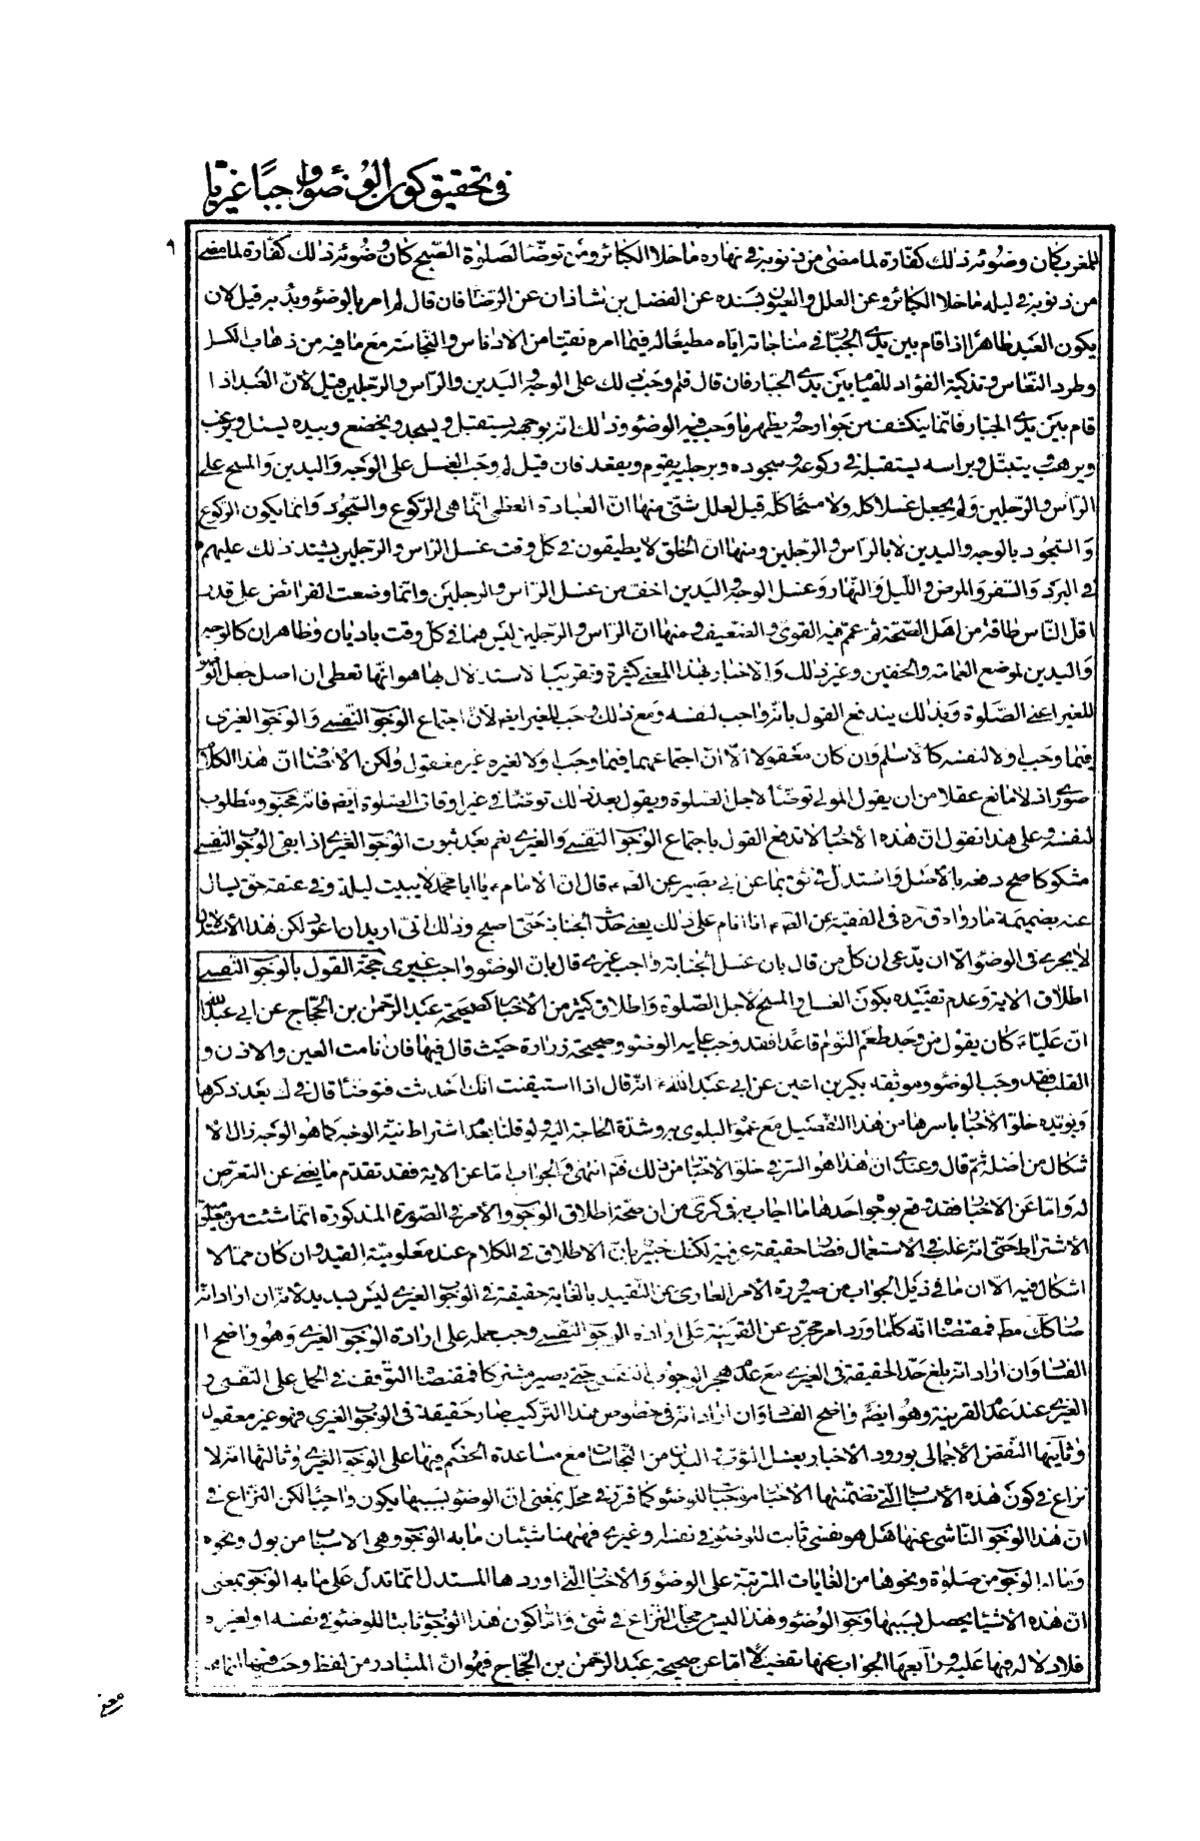 في تحقيق كون الوضوء واجبًا غيريا
٩
للمغرب كان وضوئه ذلك كفّارة لما مضى من ذنوبه في نهاره ما خلا الكبائر ومن توضّأ لصلوة الصّبح كان وضوئه ذلك كفارة لما مضى
من ذنوبه في ليله ما خلا الكبائر وعن العلل والعيون بسنده عن الفضل بن شاذان عن الرّضا فان قال لم امر بالوضوء وبدء به قيل لان
يكون العبد طاهرا اذا قام بين يدي الجبّار في مناجاته ايّاه مطيعًا له فيما امره نقيّا من الادناس والنّجاسة مع ما فيه من ذهاب الكسل
وطرد النّعاس وتذكية الفؤاد للقيام بين يدي الجبّار فان قال فلم وجب ذلك على الوجه واليدين والرّاس والرّجلين قيل لانّ العبد اذا
قام بين يدي الجبّار فانّما ينكشف من جوارحه ويظهر ما وجب فيه الوضوء وذلك انّه بوجهه يستقبل ويسجد ويخضع وبيده يسئل ويرغب
ويرهب ويتبتّل وبراسه يستقبله في ركوعه وسجوده وبرجليه يقوم ويقعد فان قيل لم وجب الغسل على الوجه واليدين والمسح على
الرّاس والرّجلين ولم يجعل غسلا كله ولا مسحًا كلّه قيل لعلل شتّى منها انّ العبادة العظمى انّما هي الرّكوع والسّجود وانّما يكون الرّكوع
والسّجود بالوجه واليدين لا بالرّاس والرّجلين ومنها ان الخلق لا يطيقون في كلّ وقت غسل الرّاس والرّجلين يشتد ذلك عليهم
في البرد والسّفر والمرض واللّيل والنّهار وغسل الوجه واليدين اخفّ من غسل الرّاس والرجلين وانّما وضعت الفرائض على قدر
اقلّ النّاس طاقة من اهل الصّحّة ثم عمّ فيه القوىّ والضّعيف ومنها انّ الرّاس والرّجلين ليس هما في كلّ وقت باديان وظاهران كالوجه
واليدين لموضع العمامة والخفين وغير ذلك والاخبار بهذا المعنى كثيرة وتقريب الاستدلال بها هو انّها تعطى ان اصل جعل الوضوء
للغير اعنى الصّلوة وبذلك يندفع القول بانّه واجب لنفسه ومع ذلك وجب للغير ايضا لانّ اجتماع الوجوب النّفسي والوجوب الغيري
فيما وجب اولا لنفسه كالاسلام وان كان معقولا الّا انّ اجتماعهما فيما وجب اولا لغيره غير معقول ولكن الانصاف انّ هذا الكلام
صورى اذ لا مانع عقلا من ان يقول المولى توضّأ لاجل الصّلوة ويقول بعد ذلك توضّأ في غير اوقات الصّلوة ايضا فانّه محبوب ومطلوب
لنفسه وعلى هذا نقول انّ هذه الاخبار لا تدفع القول باجتماع الوجوب النّفسي والغيري نعم بعد ثبوت الوجوب الغيري اذا بقى الوجوب النّفسي
مشكوكا صح دفعه بالاصل واستدل في ثق بما عن ابي بصير عن الصّ قال انّ الامام يا ابا محمد لا يبيت ليلة وفي عنقه حق يسال
عنه بضميمة ما رواه ق ره في الفقيه عن الصّ انا انام على ذلك يعنى حدث الجنابة حتّى اصبح وذلك انّى اريد ان اعود ولكن هذا الاستدلال
لا يجرى في الوضوء الّا ان يدّعى ان كلّ من قال بان غسل الجنابة واجب غيرى قال بان الوضوء واجب غيرى حجة القول بالوجوب النّفسي
اطلاق الاية وعدم تقييده بكون الغسل والمسح لاجل الصّلوة واطلاق كثير من الاخبار كصحيحة عبد الرّحمن بن الحجّاج عن ابي عبد الله
انّ عليّا كان يقول من وجد طعم النّوم قاعدًا فقد وجب عليه الوضوء وصحيحة زرارة حيث قال فيها فان نامت العين والاذن و
القلب فقد وجب الوضوء وموثقة بكير بن اعين عن ابي عبد الله انّه قال اذا استيقنت انك احدثت فتوضّأ قال في ك بعد ذكرها
ويؤيّده خلوّ الاخبار باسرها من هذا التّفصيل مع عموم البلوى به وشدّة الحاجة اليه ولو قلنا بعدم اشتراط نيّة الوجه كما هو الوجه زال الا
شكال من اصله ثمّ قال وعندى انّ هذا هو السّر في خلوّ الاخبار من ذلك قدّه انتهى والجواب امّا عن الاية فقد تقدّم ما يغنى عن التعرّض
له وامّا عن الاخبار فقد دفع بوجوه احدها ما اجاب به في كرى من ان صحّة اطلاق الوجوب والامر في الصّورة المذكورة انّما نشئت من معلوميّة
الاشتراط حتى انّه غلب في الاستعمال فصار حقيقة عرفية لكنك خبير بان الاطلاق في الكلام عند معلوميّة القيد وان كان ممّا لا
اشكال فيه الّا ان ما في ذيل الجواب من صيرورة الامر العارى عن التّقييد بالغاية حقيقة في الوجوب الغيري ليس بسديد لانّه ان اراد انّه
صار كك مط فمقتضاه انّه كلّما ورد امر مجرّد عن القرينة على ارادة الوجوب النّفسي وجب حمله على ارادة الوجوب الغيري وهو واضح ا
الفساد وان اراد انّه بلغ حدّ الحقيقة في الغيري مع عدم هجر الوجوب النّفسي حتى يصير مشتركا فمقتضاه التّوقّف في الحمل على النّفسي و
الغيري عند عدم القرينة وهو ايضا واضح الفساد وان اراد انّه في خصوص هذا التركيب صار حقيقة في الوجوب الغيري فهو غير معقول
وثانيها النّقض الاجمالى بورود الاخبار بغسل الثّوب والبدن من النّجاسات مع مساعدة الخصم فيها على الوجوب الغيري وثالثها انّه لا
نزاع في كون هذه الاسباب الّتى تضمّنتها الاخبار موجبا للوضوء كما قرّر في محلّه بمعنى انّ الوضوء بسببها يكون واجبًا لكن النّزاع في
انّ هذا الوجوب النّاشى عنها هل هو نفسى ثابت للوضوء في نفسه او غيرى فههنا شيئان ما به الوجوب وهي الاسباب من بول ونحوه
وما له الوجوب من صلوة ونحوها من الغايات المترتبة على الوضوء والاخبار الّتى اوردها المستدل انّما تدل على ما به الوجوب بمعنى
انّ هذه الاشياء يحصل بسببها وجوب الوضوء وهذا ليس من محلّ النّزاع في شيء وامّا كون هذا الوجوب ثابتا للوضوء في نفسه او لغيره
فلا دلالة فيها عليه ورابعها الجواب عنها تفصيلا امّا عن صحيحة عبد الرّحمن بن الحجّاج فهو انّ المتبادر من لفظ وجب فيها